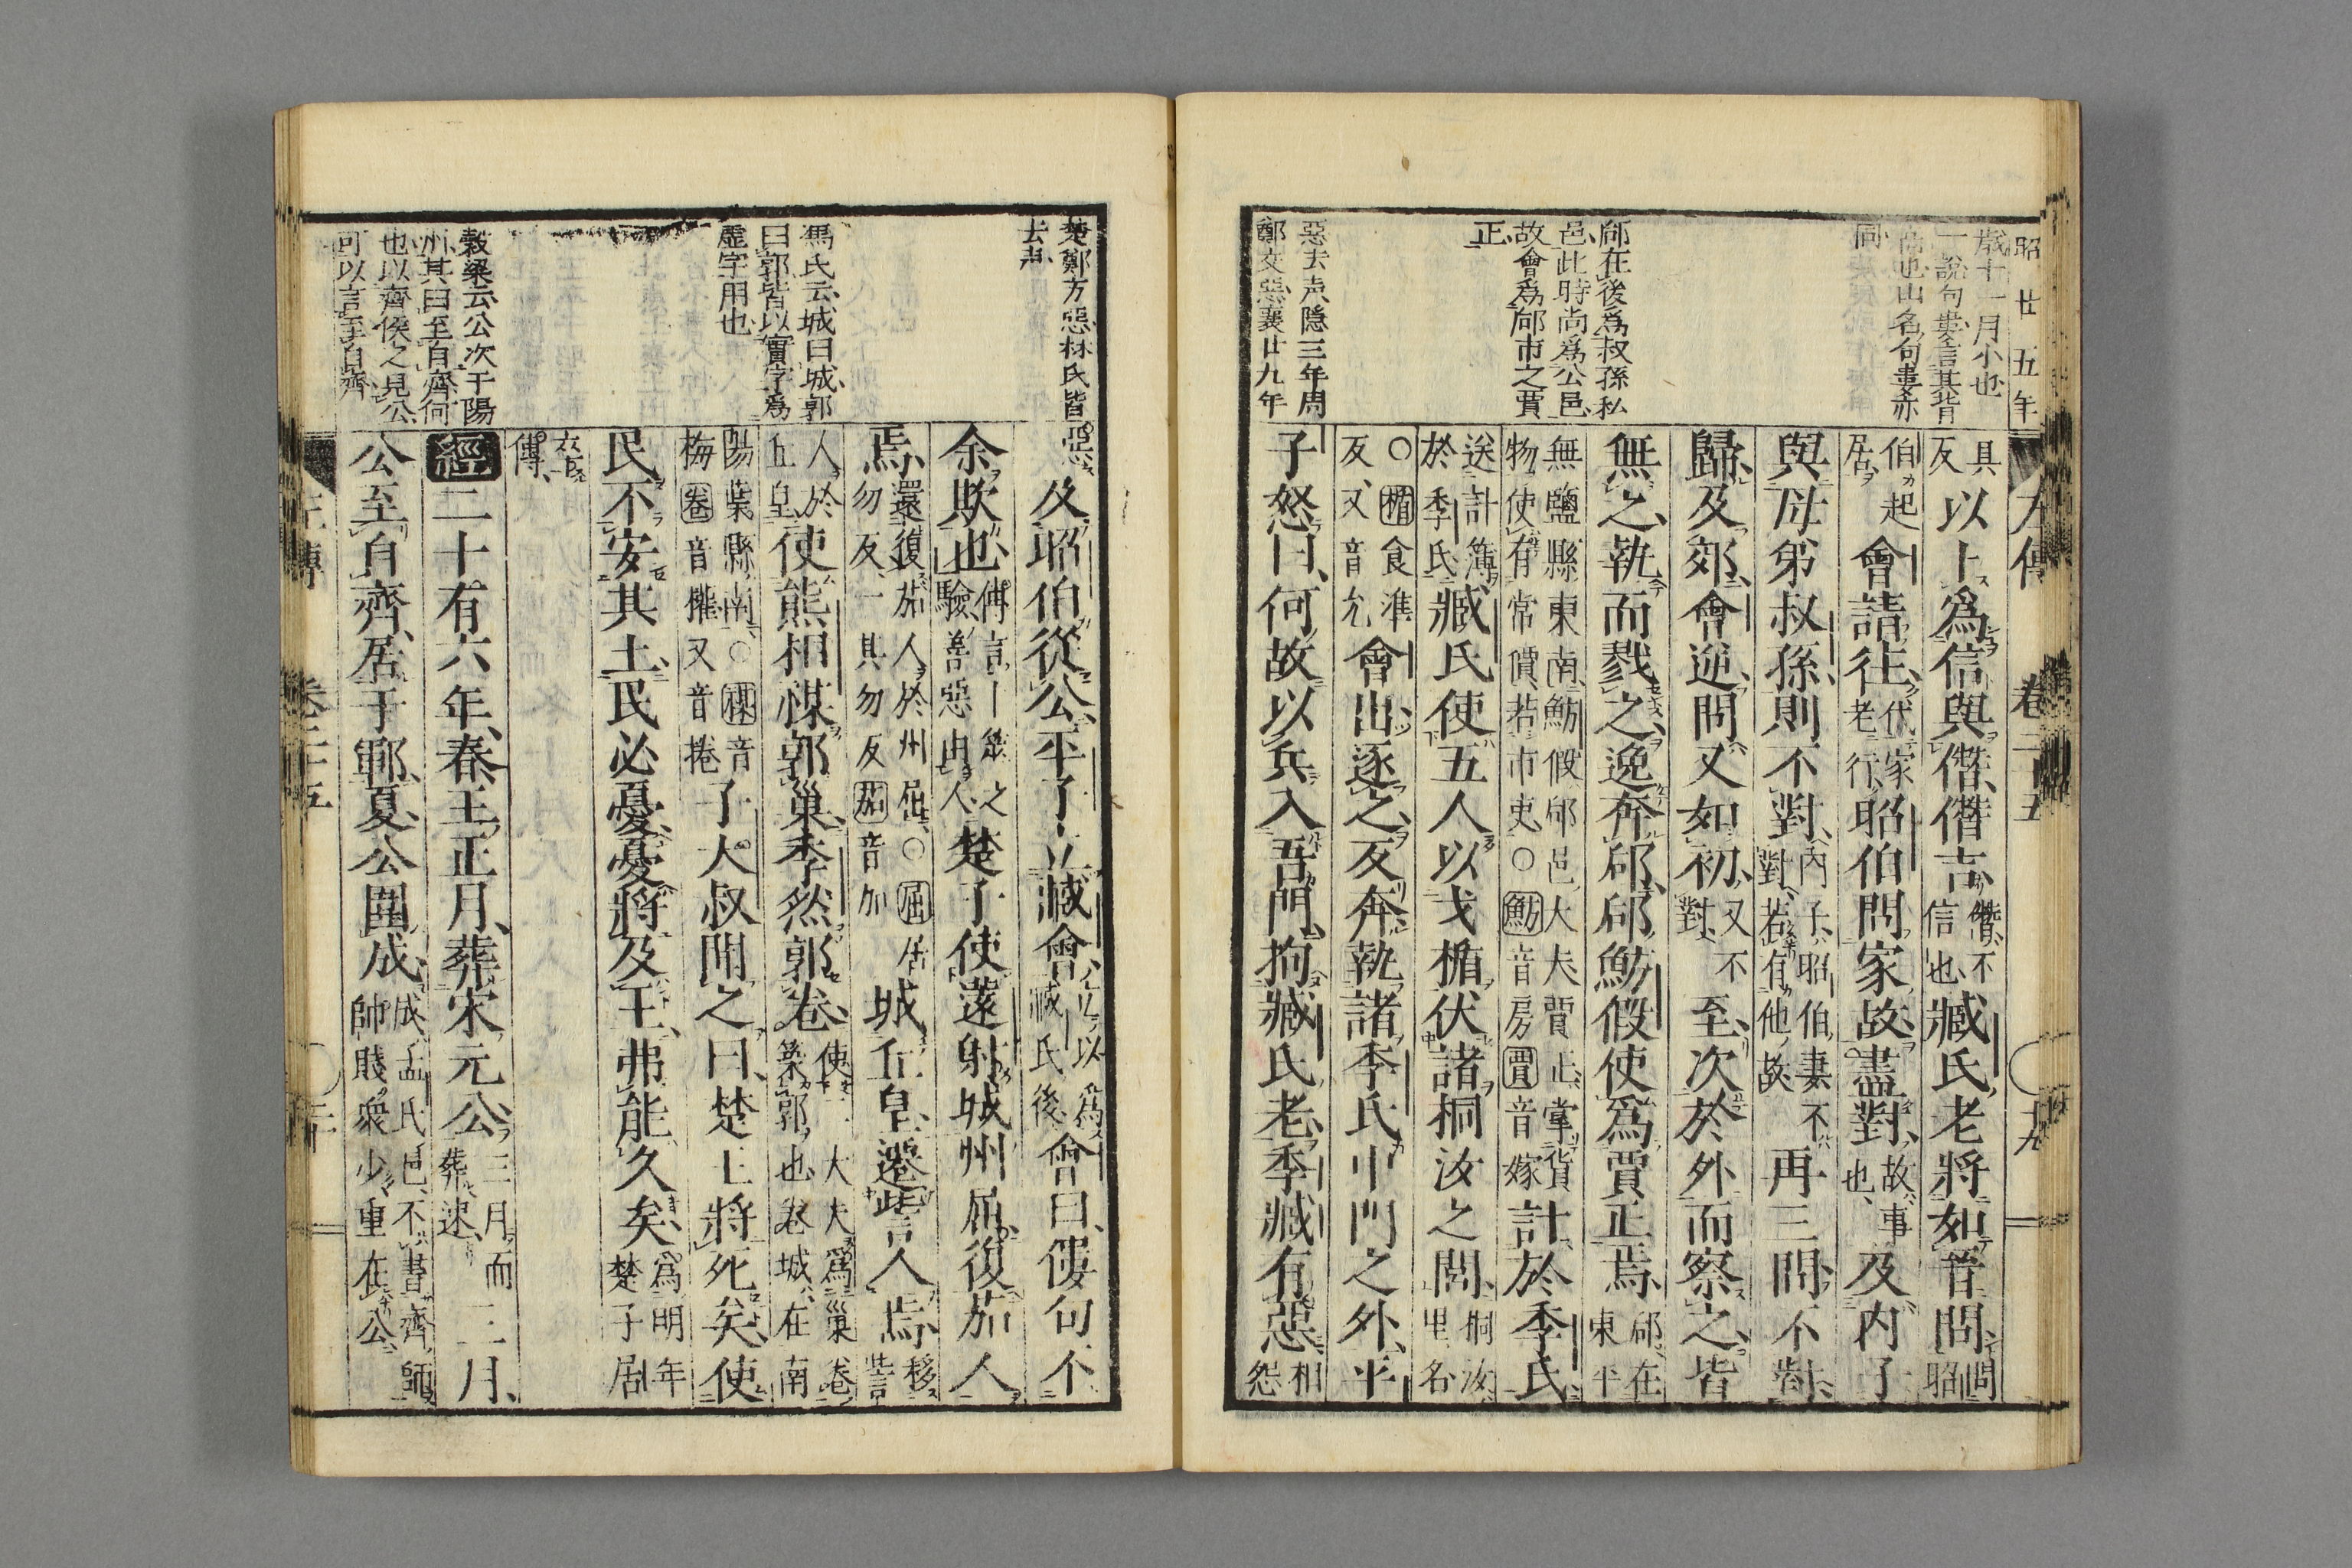 昭廿五年
左傳 卷二十五 十九
歳十一月小也
一説句婁言其背
高也山名句婁亦
同
郈在後爲叔孫私
邑此時尚爲公邑
故會爲郈市之賈
正
惡去声隱三年周
鄭交惡襄廿九年
具反以卜爲信與僭僭吉僭不信也臧氏老將如晉問問昭
伯起居會請往代家老行昭伯問家故盡對故事也及内子
與母弟叔孫則不對内子昭伯妻不對若有他故再三問不對
歸及郊會逆問又如初又不對至次於外而察之皆
無之執而戮之逸奔郈郈魴假使爲賈正焉郈在東平
無鹽縣東南魴假郈邑大夫賈正掌貨物使有常價若市吏○魴音房賈音嫁計於季氏
送計簿於季氏臧氏使五人以戈楯伏諸桐汝之閭桐汝里名
○楯食準反又音允會出逐之反奔執諸季氏中門之外平
子怒曰何故以兵入吾門拘臧氏老季臧有惡相怨
楚鄭方惡林氏皆
去声
馬氏云城曰城郭
曰郭皆以實字爲
虚字用也
穀梁云公次于陽
州其曰至自齊何
也以齊侯之見公
可以言至自齊
惡及昭伯從公平子立臧會立以爲臧氏後會曰僂句不
余欺也傳言卜筮之驗善惡由人楚子使薳射城州屈復茄人
焉還復茄人於州屈○屈居勿反一其勿反茄音加城丘皇遷訾人焉移訾
人於丘皇使熊相禖郭巢季然郭卷使二大夫爲巢卷築郭也卷城在南
陽葉縣南○禖音梅卷音權又音捲子大叔聞之曰楚王將死矣使
民不安其土民必憂憂將及王弗能久矣爲明年楚子居
卒傳
經二十有六年春王正月葬宋元公三月而葬速三月
公至自齊居于鄆夏公圍成成孟氏邑不書齊師帥賤衆少重在公